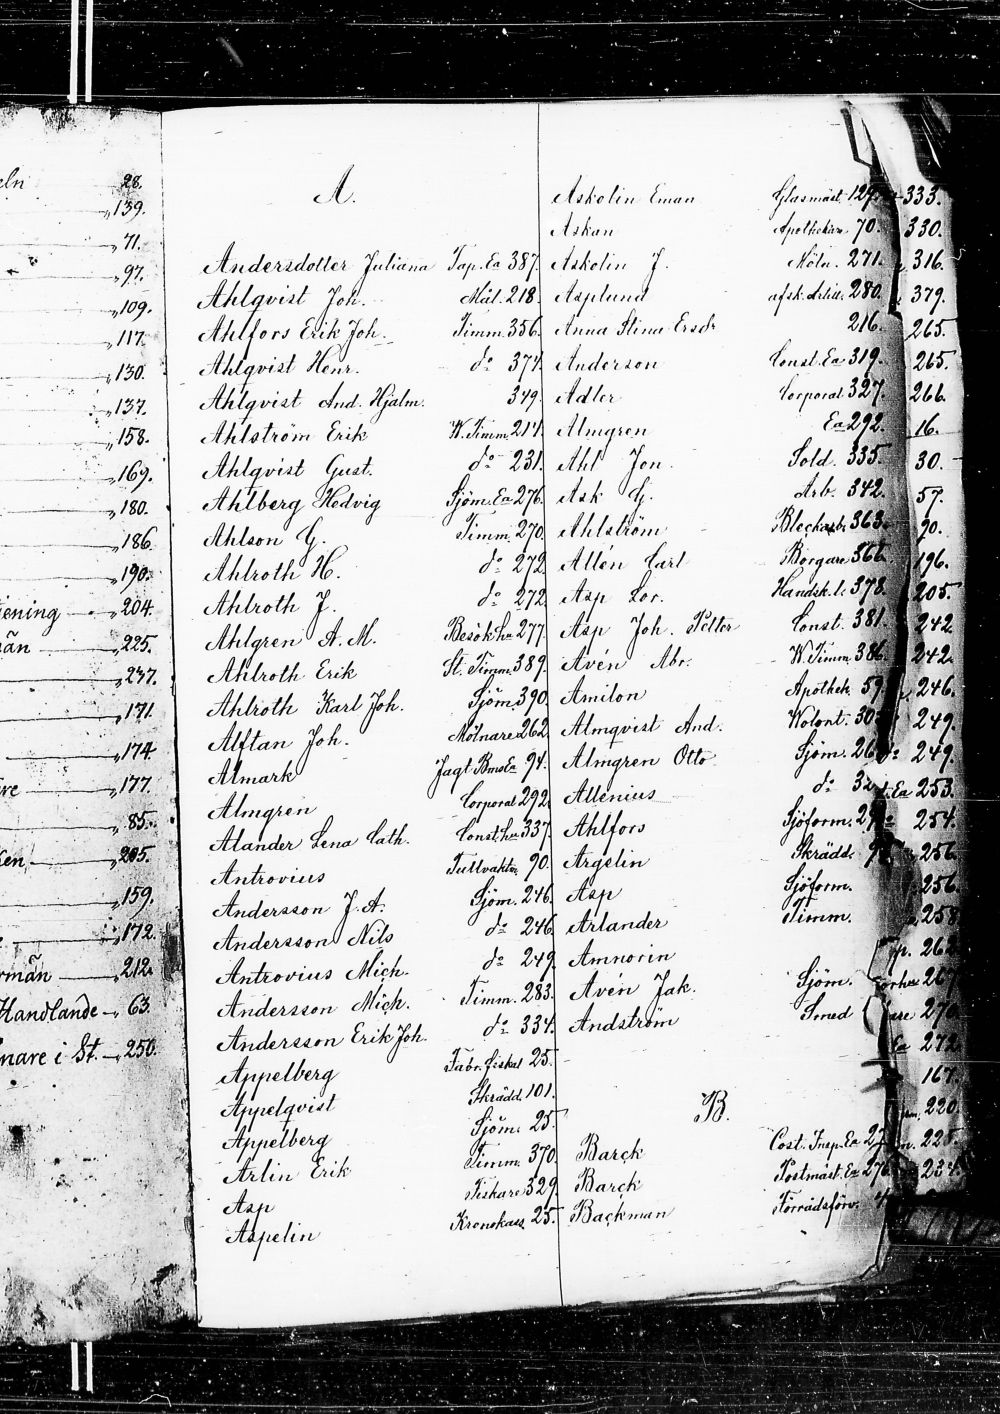 eln 28.
„139.
„71.
„97.
„109.
„117.
„130.
„137.
„158.
„169.
„180.
„186
„190.
ening „204.
än „225.
„237.
„171.
„174.
re „177.
„85.
ken „205.
„159.
„172.
rmän „212.
Handlande „63.
nare i St. „250.
A.
Andersdotter Juliana Tap. Ea 387.
Ahlqvist Joh. Mål. 218.
Ahlfors Erik Joh. Timm. 356.
Ahlqvist Henr. do 374.
Ahlqvist And. Hjalm. 349.
Ahlström Erik W. Timm. 214.
Ahlqvist Gust. do 231.
Ahlberg Hedvig Sjöm. Ea 276.
Ahlson G. Timm. 270.
Ahlroth H. do 272
Ahlroth J. do 272
Ahlgren A. M. Besök.hu 277.
Ahlroth Erik St. Timm. 389.
Ahlroth Karl Joh. Sjöm. 390.
Alftan Joh. Mölnare 262.
Almark Jagt Bms Ea 94.
Almgren Corporal 292.
Alander Lena Cath. Const. hu 337.
Antrovius Tullvaktm. 90.
Andersson J. A. Sjöm. 246.
Andersson Nils do 246.
Antrovius Mich. do 249.
Andersson Mich. Timm. 283.
Andersson Erik Joh. do 334.
Appelberg Fabr. fiskal 25.
Appelqvist Skrädd. 101.
Appelberg Sjöm. 25.
Arlin Erik Timm. 370.
Asp Fiskare 329.
Aspelin Kronokass. 25.
Askolin Eman Glasmäst. 129.
Askan Apothekare 70.
Askolin J. Möln. 271.
Asplund afsk. Artill. 280.
Anna Stina Ersdr 216.
Anderson Const. Ea 319.
Adler Corporal 327.
Almgren Ea 292.
Ahl Jon. Sold. 335.
Ask G. Arb. 342.
Ahlström Bleckarb. 363.
Allén Carl Borgare 366.
Asp Lor. Handsk. 378.
Asp Joh. Petter Const. 381.
Avén Abr. W. Timm. 386.
Amilon Apothek. 59.
Almqvist And. Wolont. 30
Almgren Otto Sjöm. 26
Allenius do 32
Ahlfors Sjöform. 2
Argelin Skrädd. 9
Asp Sjöform.
Arlander Timm.
Amnorin
Avén Jak. Sjöm.
Andström Smed
B.
Barck Cost. Insp. Ea 27
Barck Postmäst. Ea 276
Backman Förrådsförv. 4
333.
330.
316.
379.
265.
265.
266.
16.
30.
57.
90.
196.
205.
242.
242.
246.
249.
249.
Ea 253.
254.
256.
256.
258
262
267
270.
Ea 272
167.
220.
228.
234.